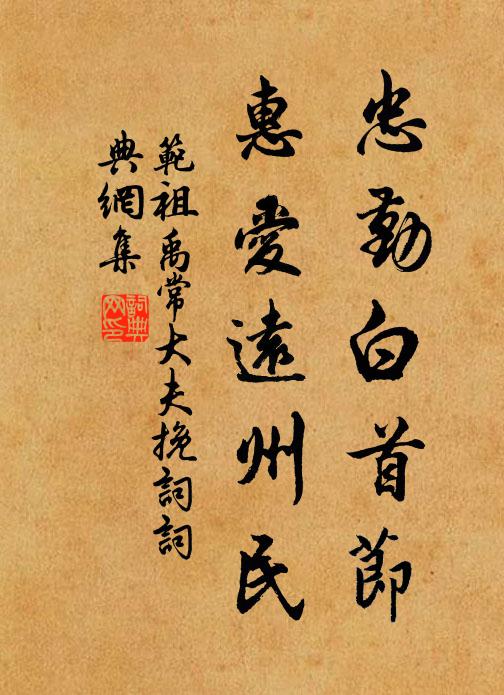 忠勤白首節
惠愛遠州民
範祖禹常大夫挽詞詞
典網集
詞典网印